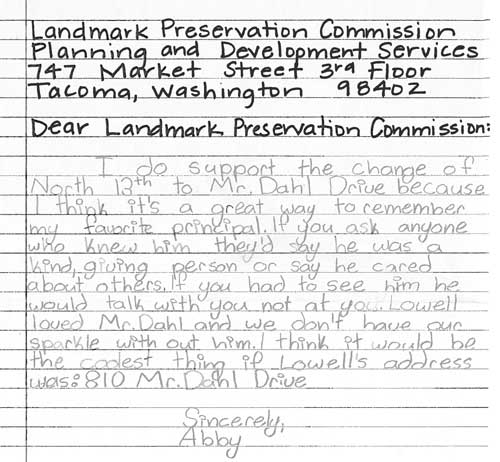 Landmark Preservation Commission
Planning and Development Services
747 Market Street 3rd Floor
Tacoma, Washington 98402
Dear Landmark Preservation Commission:
I do support the change of
North 13th to Mr. Dahl Drive because
I think it's a great way to remember
my favorite principal. If you ask anyone
who knew him they'd say he was a
kind, giving person or say he cared
about others. If you had to see him he
would talk with you not at you. Lowell
loved Mr. Dahl and we don't have our
sparkle with out him. I think it would be
the coolest thing if Lowell's address
was: 810 Mr. Dahl Drive
Sincerely,
Abby